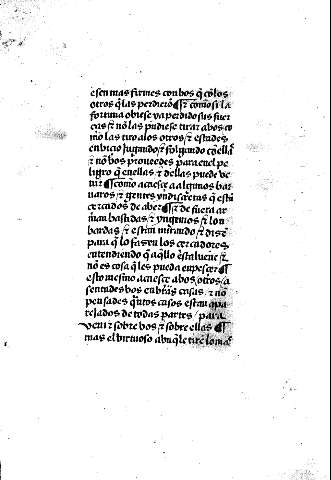 e sen mas firmes con bos q̃ cõ los
otros q̃ las perdierõ ¶ Et como si la
fortuna obiese ya perdido sus fuer
ças et nõ las pudiese tirar a bos co
mo las tiro a los otros et estades
en bicio jugando et folgando cõ ella
et nõ bos proueedes para en el pe
ligro q̃ en ellas et dellas puede ve
nir ¶ Como acaesçe a algunos bar
uaros et gentes yndiscretas q̃ estã
çercados de aber ¶ et de fuera ar
man bastidas et yngenios et lon
bardas et estan mirando et disẽ
para q̃ lo fasen los çercadores
entendiendo q̃ aq̃llo es taluene et
nõ es cosa q̃ les pueda enpesçer ¶
esto mesmo acaesçe a bos otros
sentades bos en br̃as casas et nõ
pensades q̃ntos casos estan apa
rejados de todas partes para
venir sobre bos et sobre ellas ¶
mas el birtuoso abnq̃ le tire lo mas